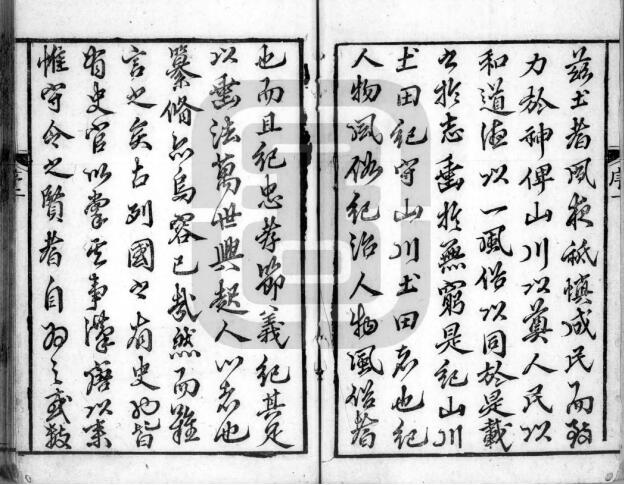 茲土者夙夜祗慎成民而致
力於神俾山川以奠人民以
和道德以一風俗以同於是載
之於志垂於無窮是紀山川
土田紀守山川土田者也紀
人物風俗紀治人物風俗者
序一
也而且紀忠孝節義紀其足
以垂法萬世興起人心者也
纂脩亦烏容已哉然而難
言之矣古列國之有史皆
有史官以掌其事漢唐以來
惟守令之賢者自為之或
序二